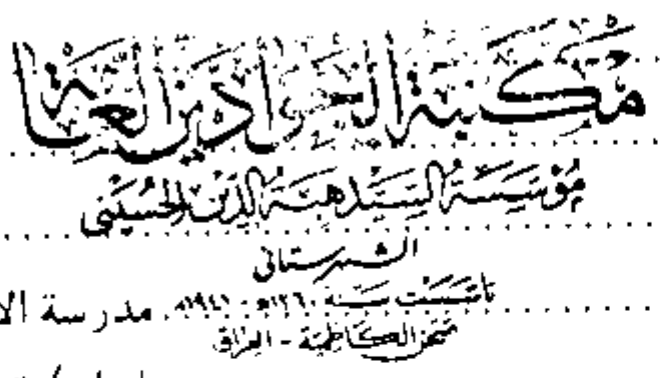 مكتبة الجوادين العامة
مؤسسة السيد هبة الدين الحسيني
الشهرستاني
تأسست سنة ١٣٦٠هـ - ١٩٤١م
مدرسة الا
صحن الكاظمية - العراق